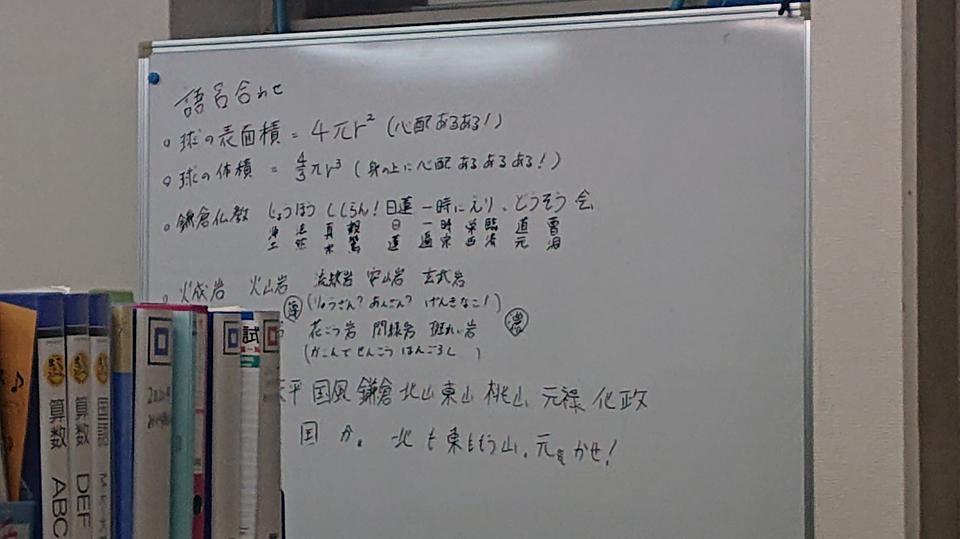 語呂合わせ
○球の表面積 = 4πr² (心配あるある!)
○球の体積 = 4/3πr³ (身の上に心配あるあるある!)
○鎌倉仏教 じょうほう ししらん! 日蓮 一時にえり、どうそう会
浄土 法然 真宗 親鸞 日蓮 一遍 時宗 栄西 臨済 道元 曹洞
火成岩 火山岩 流紋岩 安山岩 玄武岩
薄 (りょうさん? あんさん? げんきなこ!)
花こう岩 閃緑岩 斑れい岩 濃
(かこんで せんこう はんごろし )
平 国風 鎌倉 北山 東山 桃山 元禄 化政
国 か。 北も東ももう山。元気かせ!
算数 ABC
算数 DEF
国語
試